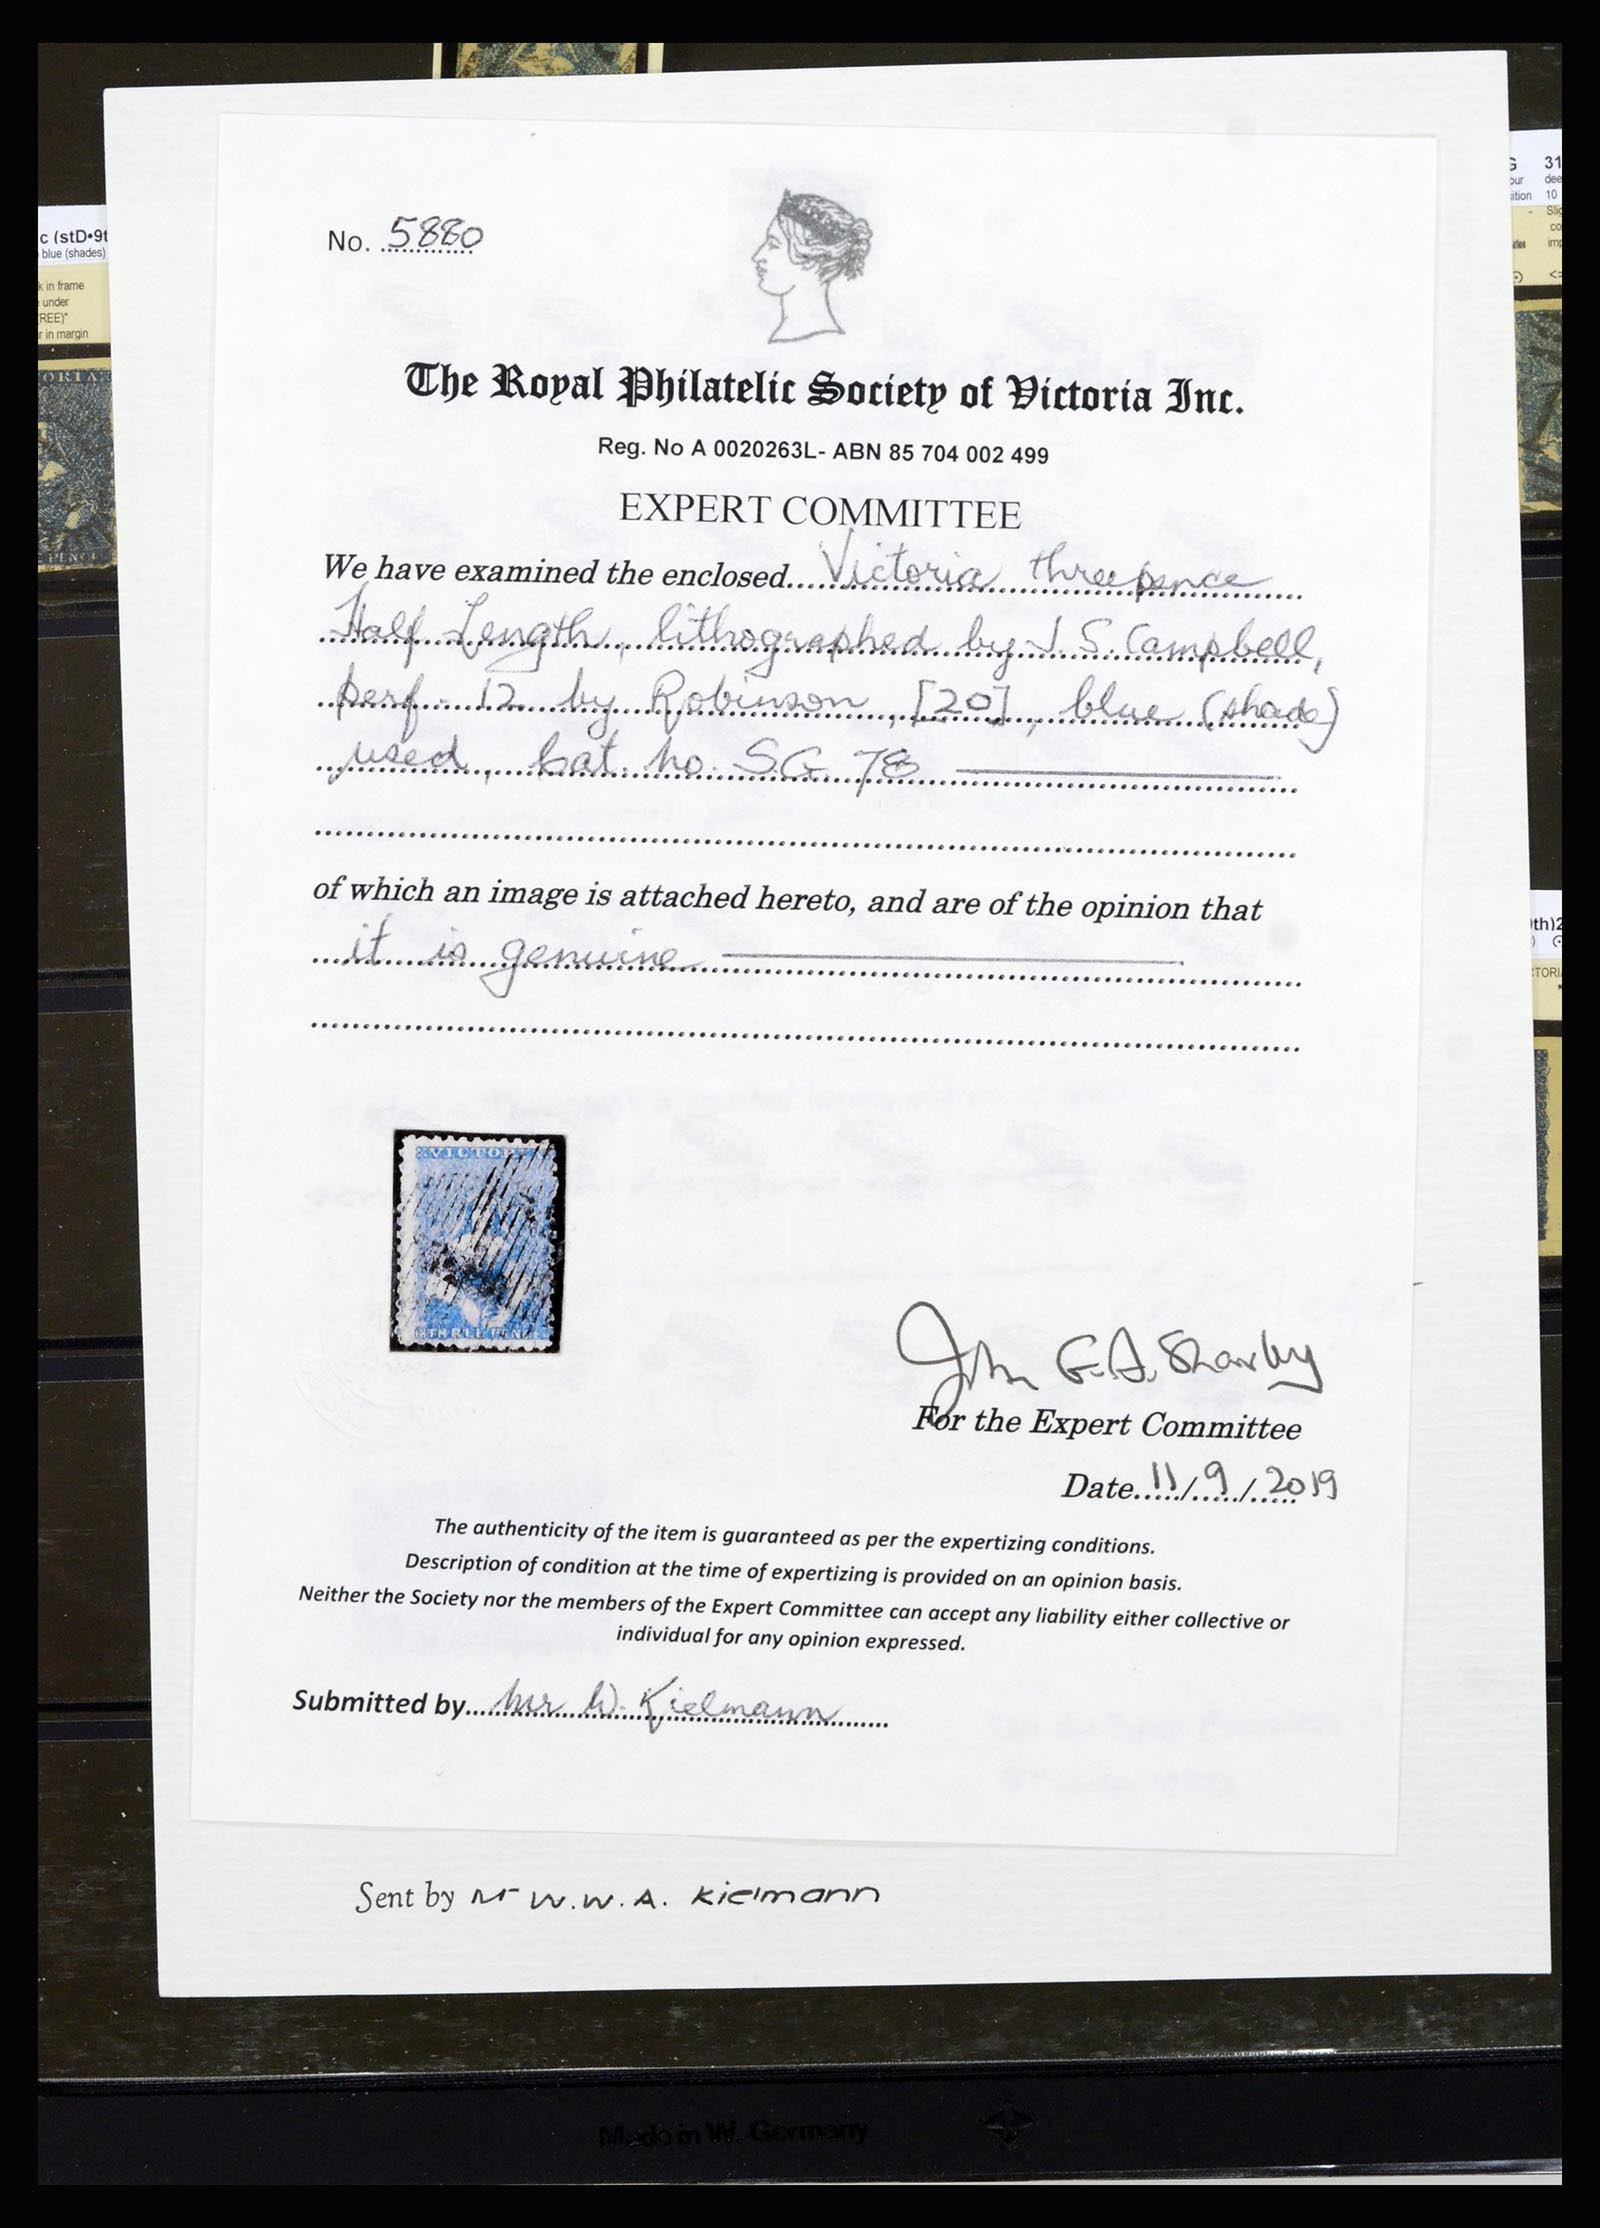 No. 5880
The Royal Philatelic Society of Victoria Inc.
Reg. No A 0020263L- ABN 85 704 002 499
EXPERT COMMITTEE
We have examined the enclosed Victoria threepence
Half Length, lithographed by J. S. Campbell,
perf. 12 by Robinson, [20], blue (shade)
used, Cat. no. S.G. 78
of which an image is attached hereto, and are of the opinion that
it is genuine
VICTOR
THREE PENC
John G.A. Sharley
For the Expert Committee
Date 11/9/2019
The authenticity of the item is guaranteed as per the expertizing conditions.
Description of condition at the time of expertizing is provided on an opinion basis.
Neither the Society nor the members of the Expert Committee can accept any liability either collective or
individual for any opinion expressed.
Submitted by Mr W. Kielmann
Sent by Mr W.W.A. Kielmann
c (stD•9t
blue (shades)
k in frame
under
REE)"
r in margin
ORIA
PENCE
31
dee
10
Made in W. Germany